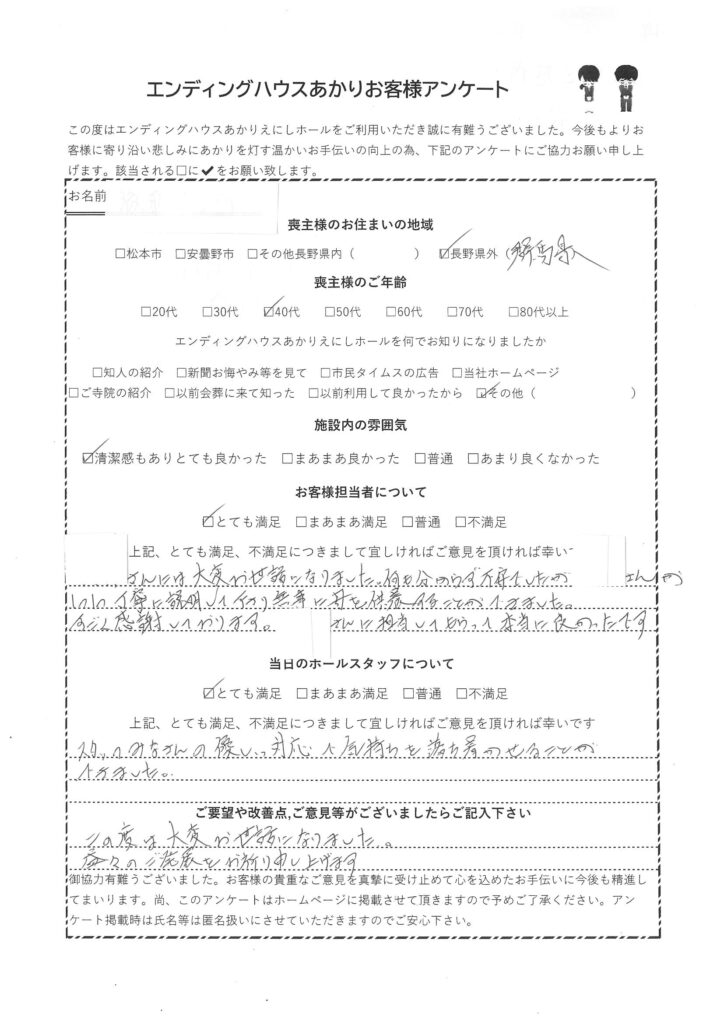 エンディングハウスあかりお客様アンケート
この度はエンディングハウスあかりえにしホールをご利用いただき誠に有難うございました。今後もよりお
客様に寄り沿い悲しみにあかりを灯す温かいお手伝いの向上の為、下記のアンケートにご協力お願い申し上
げます。該当される□に✔をお願い致します。
お名前
喪主様のお住まいの地域
□松本市 □安曇野市 □その他長野県内（　　　　） ☑長野県外（群馬県）
喪主様のご年齢
□20代 □30代 ☑40代 □50代 □60代 □70代 □80代以上
エンディングハウスあかりえにしホールを何でお知りになりましたか
□知人の紹介 □新聞お悔やみ等を見て □市民タイムスの広告 □当社ホームページ
□ご寺院の紹介 □以前会葬に来て知った □以前利用して良かったから ☑その他（　　　　　　）
施設内の雰囲気
☑清潔感もありとても良かった □まあまあ良かった □普通 □あまり良くなかった
お客様担当者について
☑とても満足 □まあまあ満足 □普通 □不満足
上記、とても満足、不満足につきまして宜しければご意見を頂ければ幸い
さんには大変お世話になりました。何も分からず不安でしたが さんが
丁寧に説明して下さり無事に母を供養することができました。
すごく感謝しております。 さんに担当してもらって本当に良かったです
当日のホールスタッフについて
☑とても満足 □まあまあ満足 □普通 □不満足
上記、とても満足、不満足につきまして宜しければご意見を頂ければ幸いです
スタッフみなさんの優しい対応で気持ちを落ち着かせることが
できました。
ご要望や改善点,ご意見等がございましたらご記入下さい
この度は大変お世話になりました。
益々のご発展をお祈り申し上げます
御協力有難うございました。お客様の貴重なご意見を真摯に受け止めて心を込めたお手伝いに今後も精進し
てまいります。尚、このアンケートはホームページに掲載させて頂きますので予めご了承ください。アン
ケート掲載時は氏名等は匿名扱いにさせていただきますのでご安心下さい。